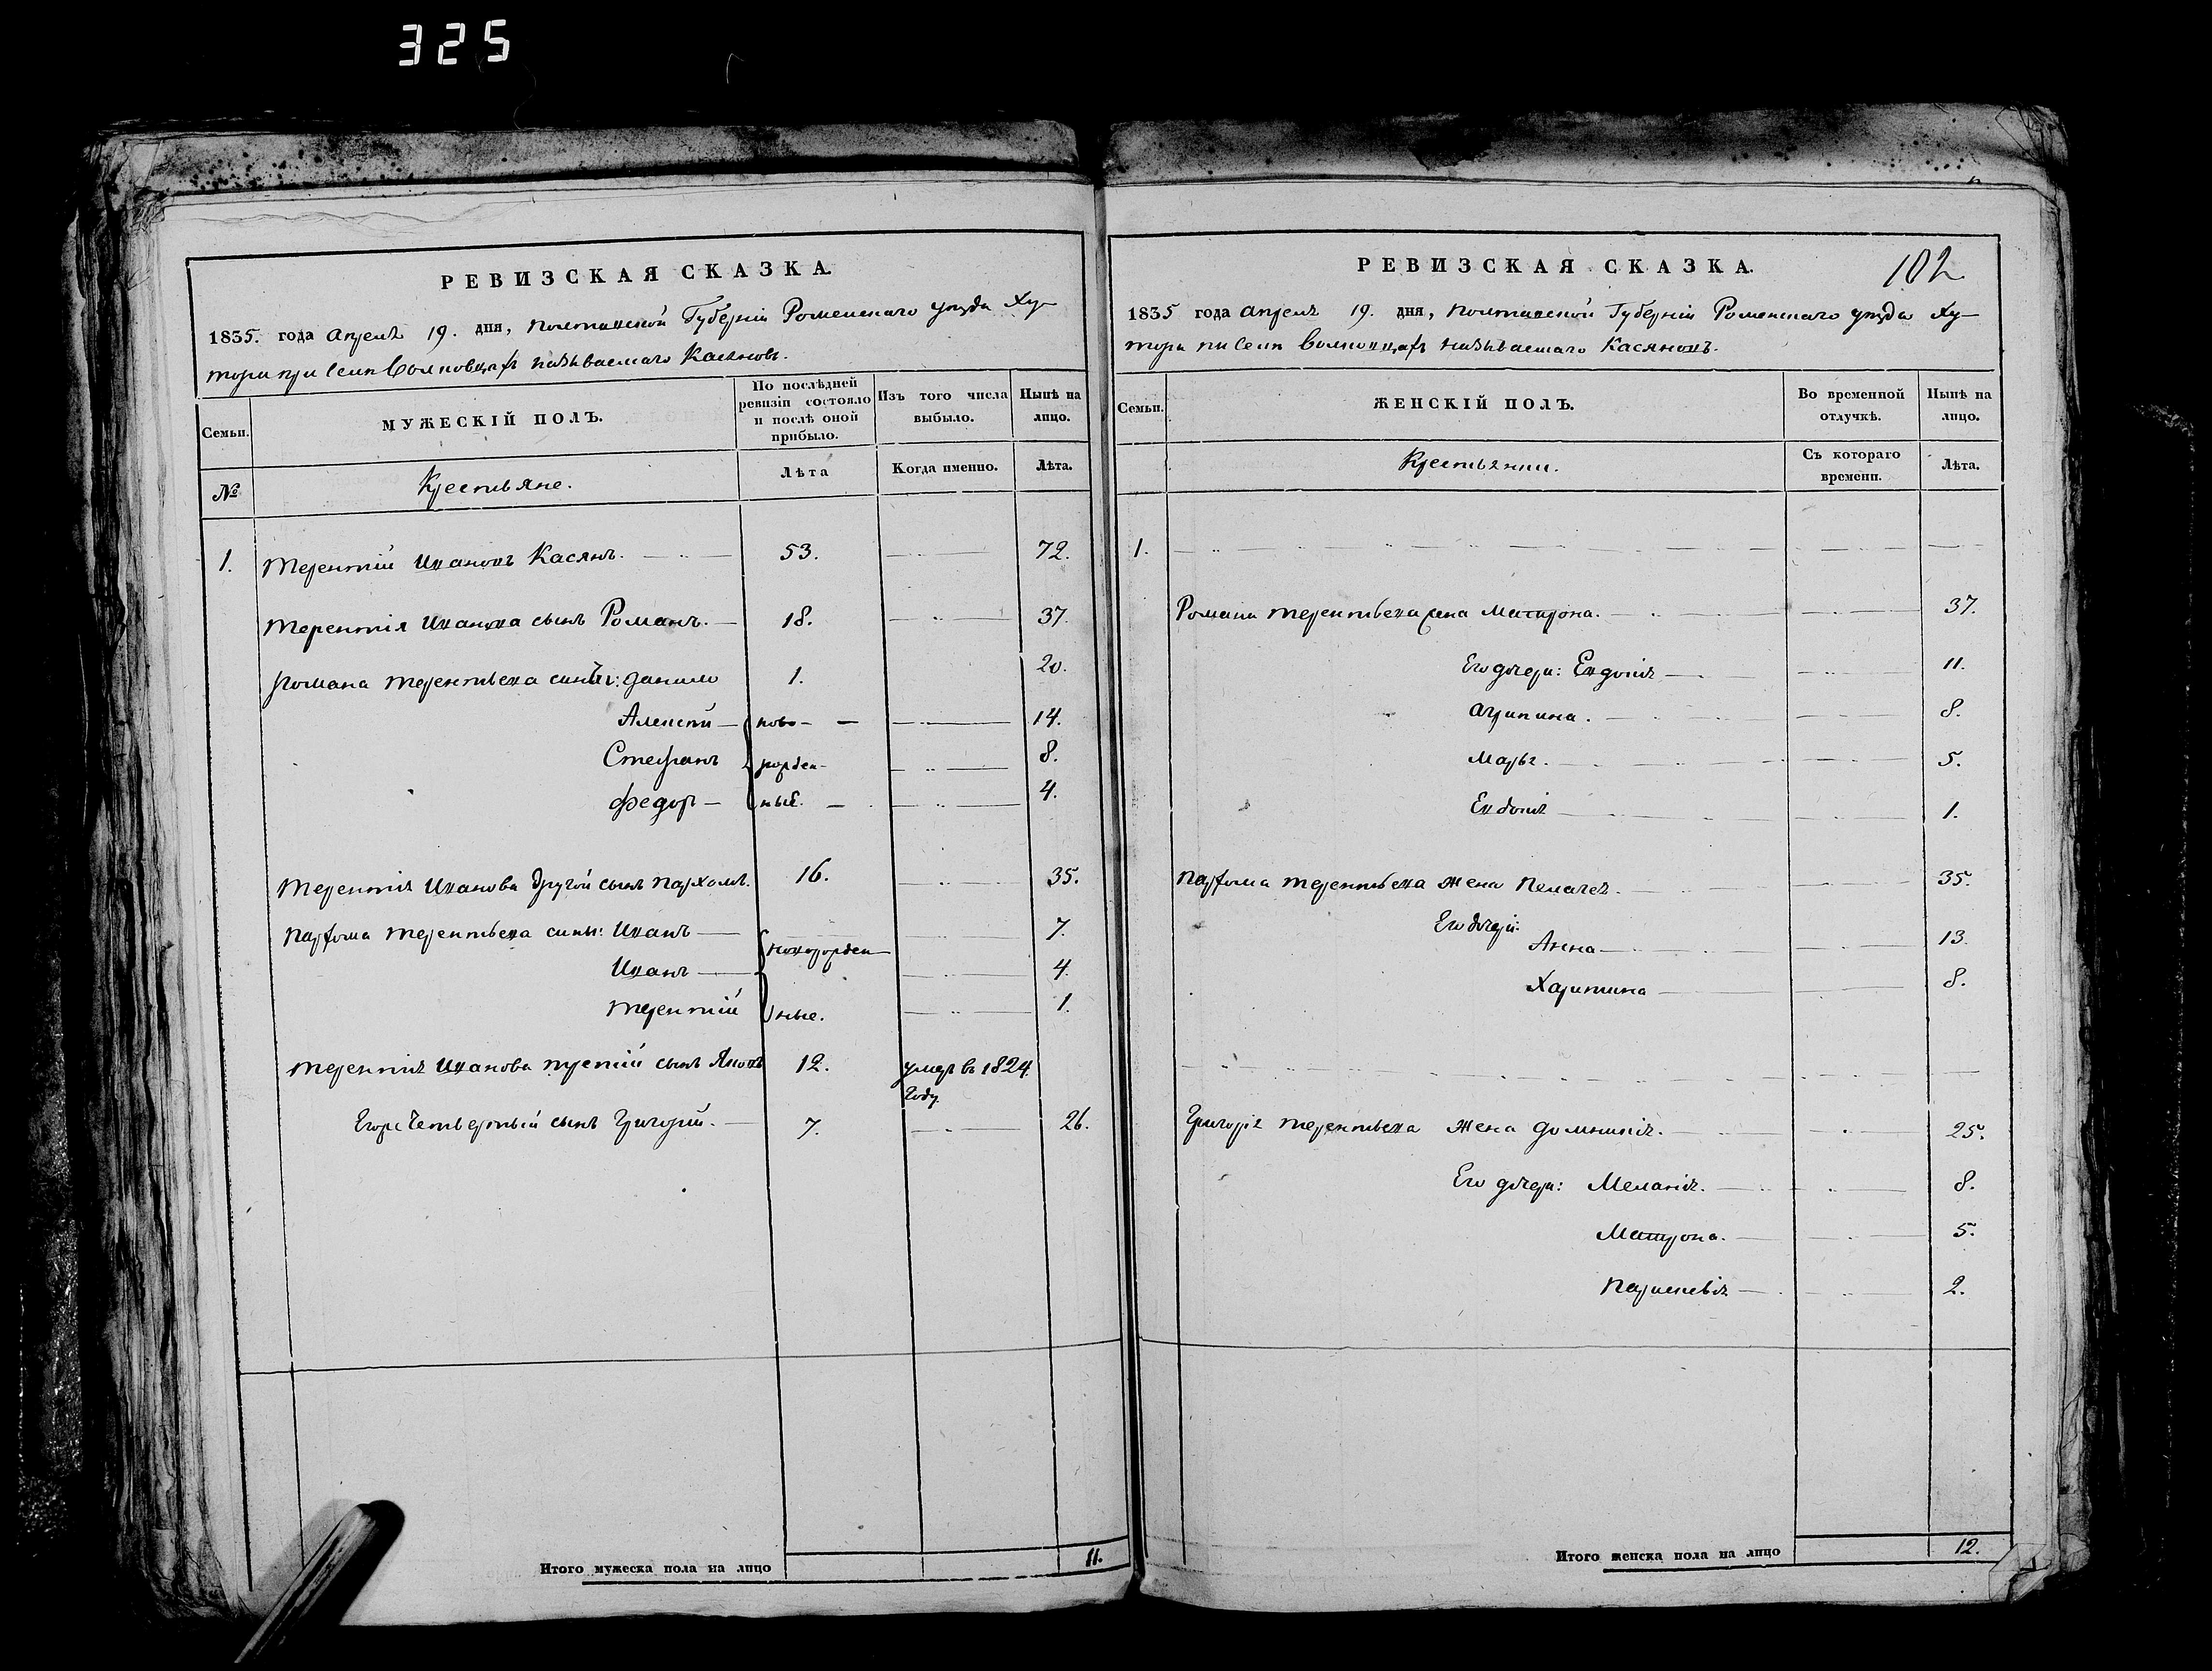 325
РЕВИЗСКАЯ СКАЗКА.
1835. года Апреля 19. дня, Полтавской Губерніи Роменского уезда Ху-
тора при селе Волковцахъ называемаго Касяновъ.
Семьи.
МУЖЕСКІЙ ПОЛЪ.
По послѣдней ревизіи состояло и послѣ оной прибыло.
Изъ того числа выбыло.
Нынѣ на лицо.
№
Крестьяне.
Лѣта
Когда именно.
Лѣта.
1. Терентій Ивановъ Касянъ. 53. 72.
Терентія Иванова сынъ Романъ. 18. 37.
Романа Терентьева сыны: Данило 1. 20.
Алексей ново- 14.
Стефанъ рожден- 8.
Федоръ ные. 4.
Терентія Иванова другой сынъ Пархомъ. 16. 35.
Пархома Терентьева сыны: Иванъ 7.
новорожден-
Иванъ 4.
Терентій ные. 1.
Терентія Иванова третій сынъ Яковъ 12. умеръ въ 1824
году
Егоже четвертый сынъ Григорій. 7. 26.
Итого мужеска пола на лицо 11.
РЕВИЗСКАЯ СКАЗКА.
102
1835 года Апреля 19. дня, Полтавской Губерніи Роменского уезда Ху-
тора пи селе Волковцахъ называемаго Касяновъ.
Семьи.
ЖЕНСКІЙ ПОЛЪ.
Во временной отлучкѣ.
Нынѣ на лицо.
Крестьянки.
Съ котораго времени.
Лѣта.
1.
Романа Терентьева жена Матрона. 37.
Его дочери: Евдокія 11.
Агрипина. 8.
Марья. 5.
Евдокія 1.
Пархома Терентьева жена Пелагея. 35.
Его дочери:
Анна 13.
Харитина 8.
Григорія Терентьева жена Домникія. 25.
Его дочери: Меланія. 8.
Матрона. 5.
Параскевія 2.
Итого женска пола на лицо 12.